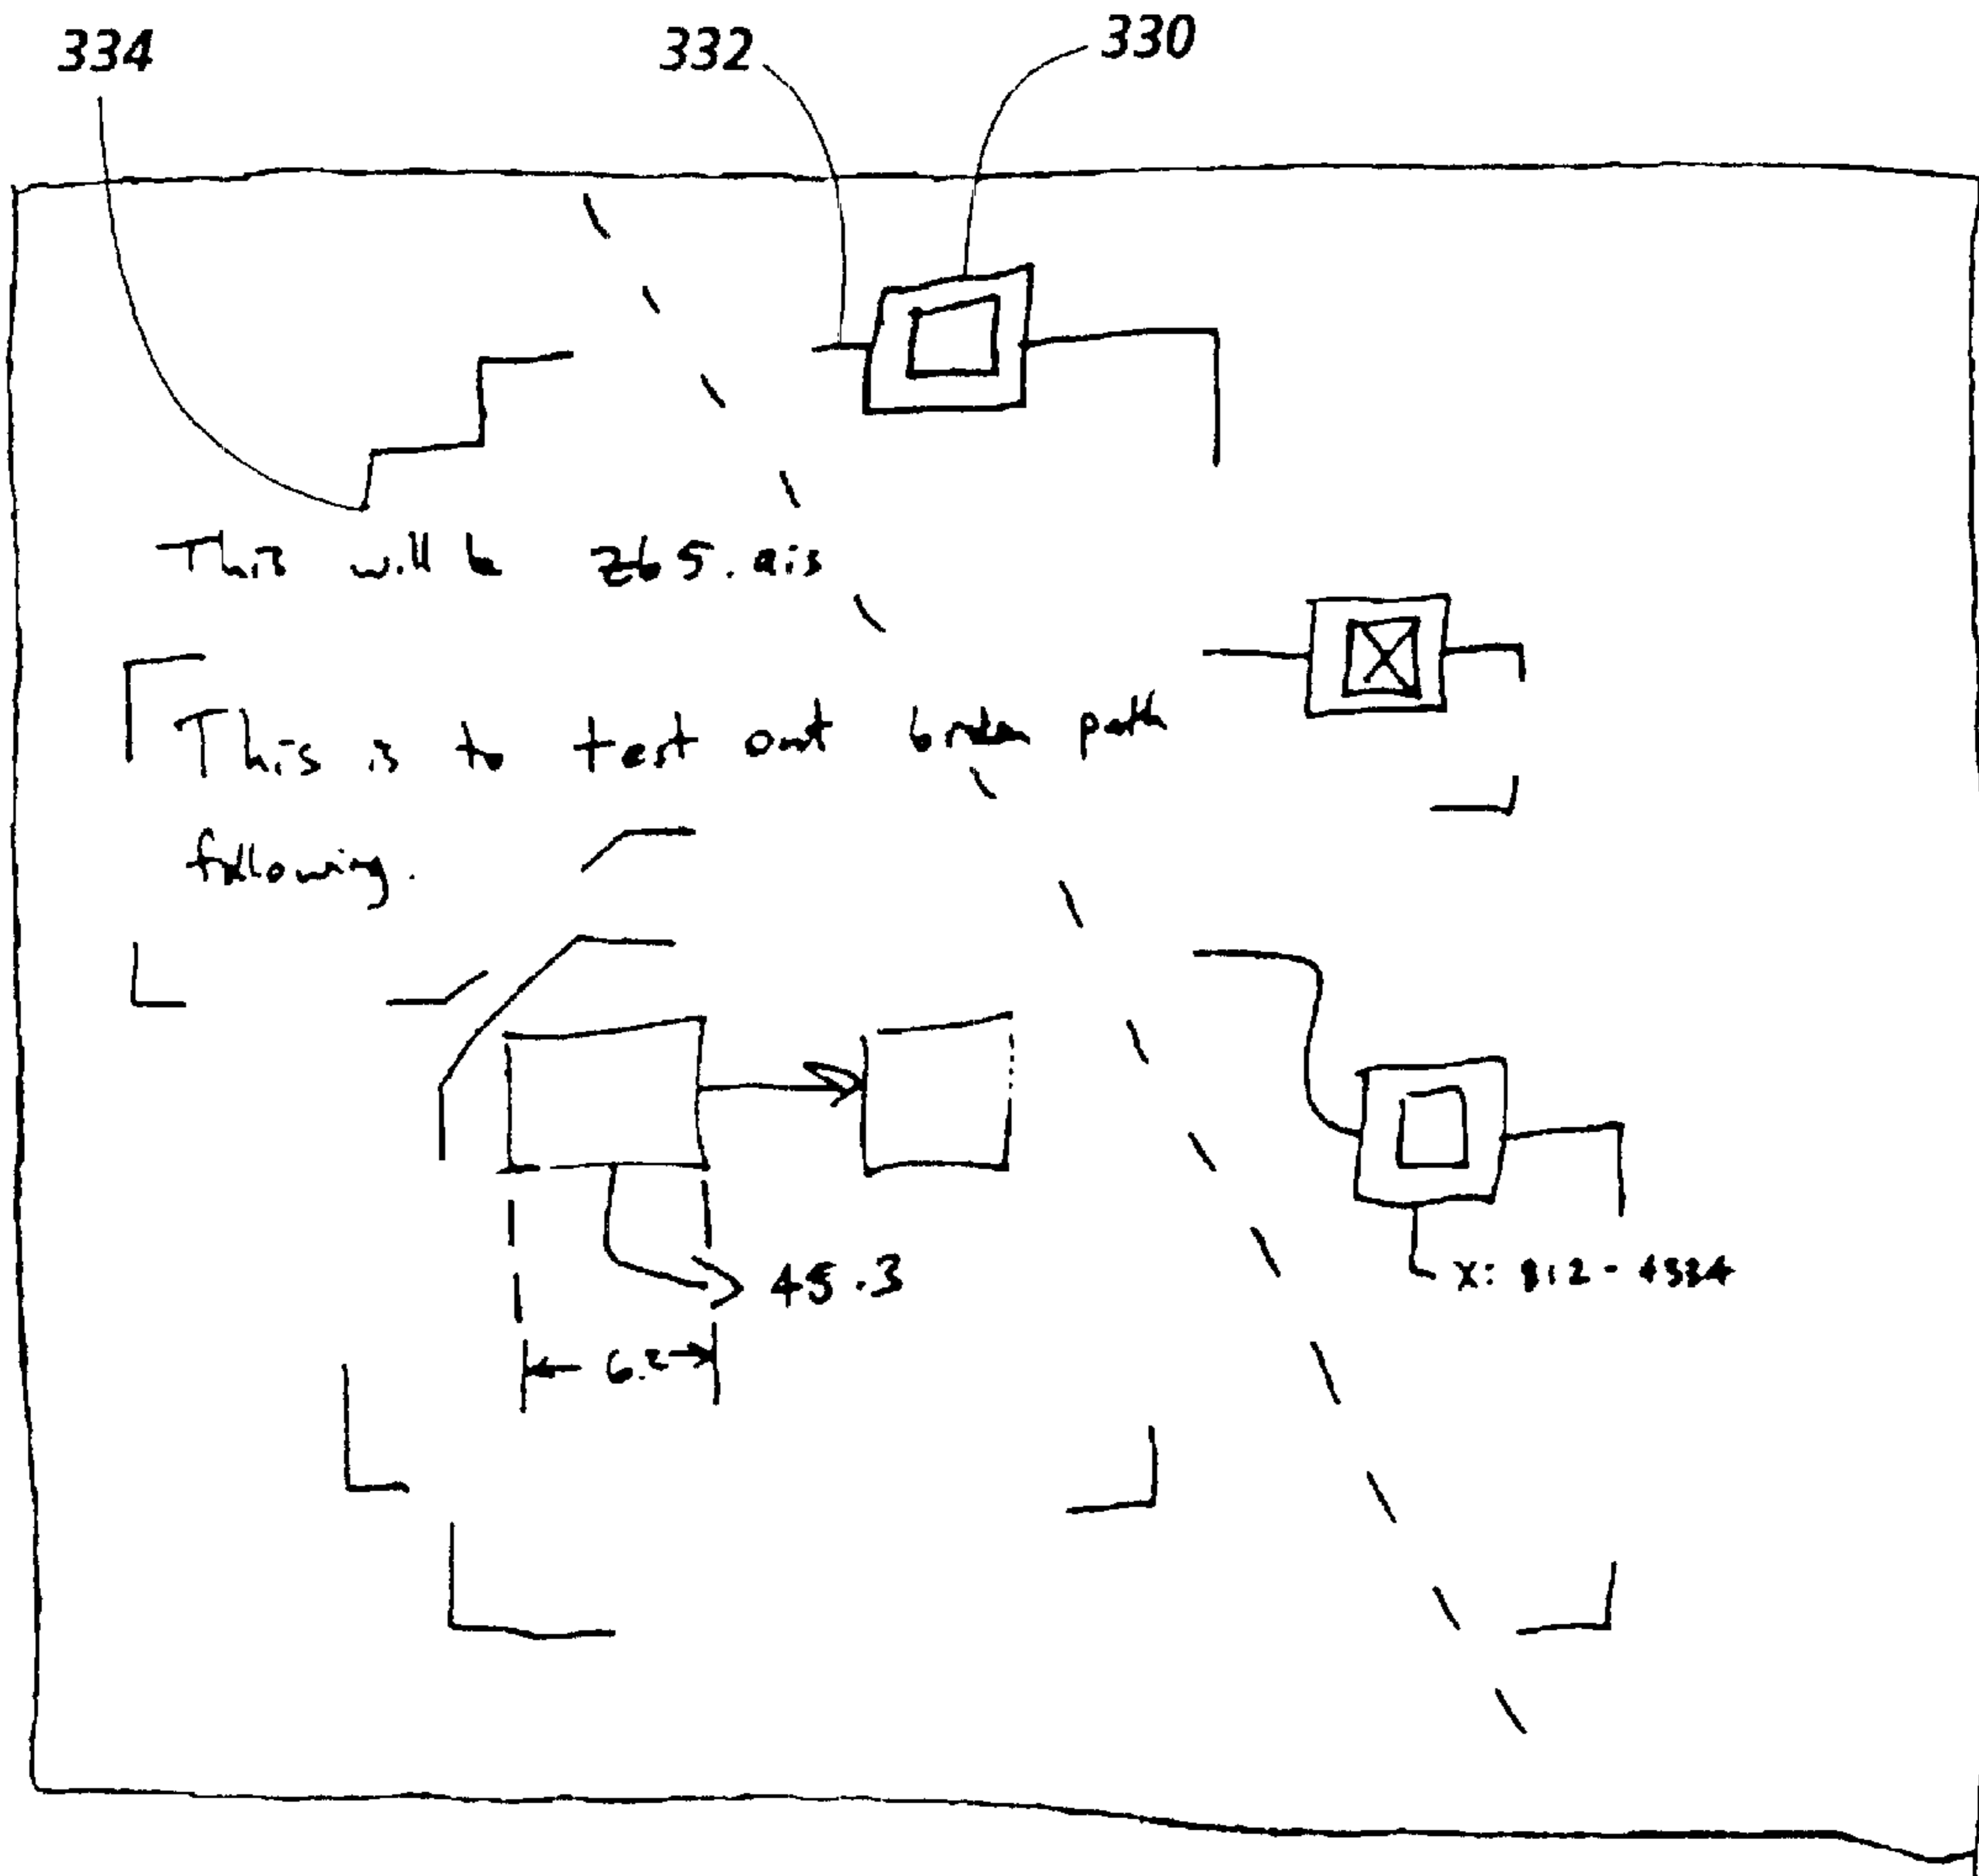 334 332 330
This will be 265.ais
This is to test out broken path
following.
45.3
6.2
x: 812-4334